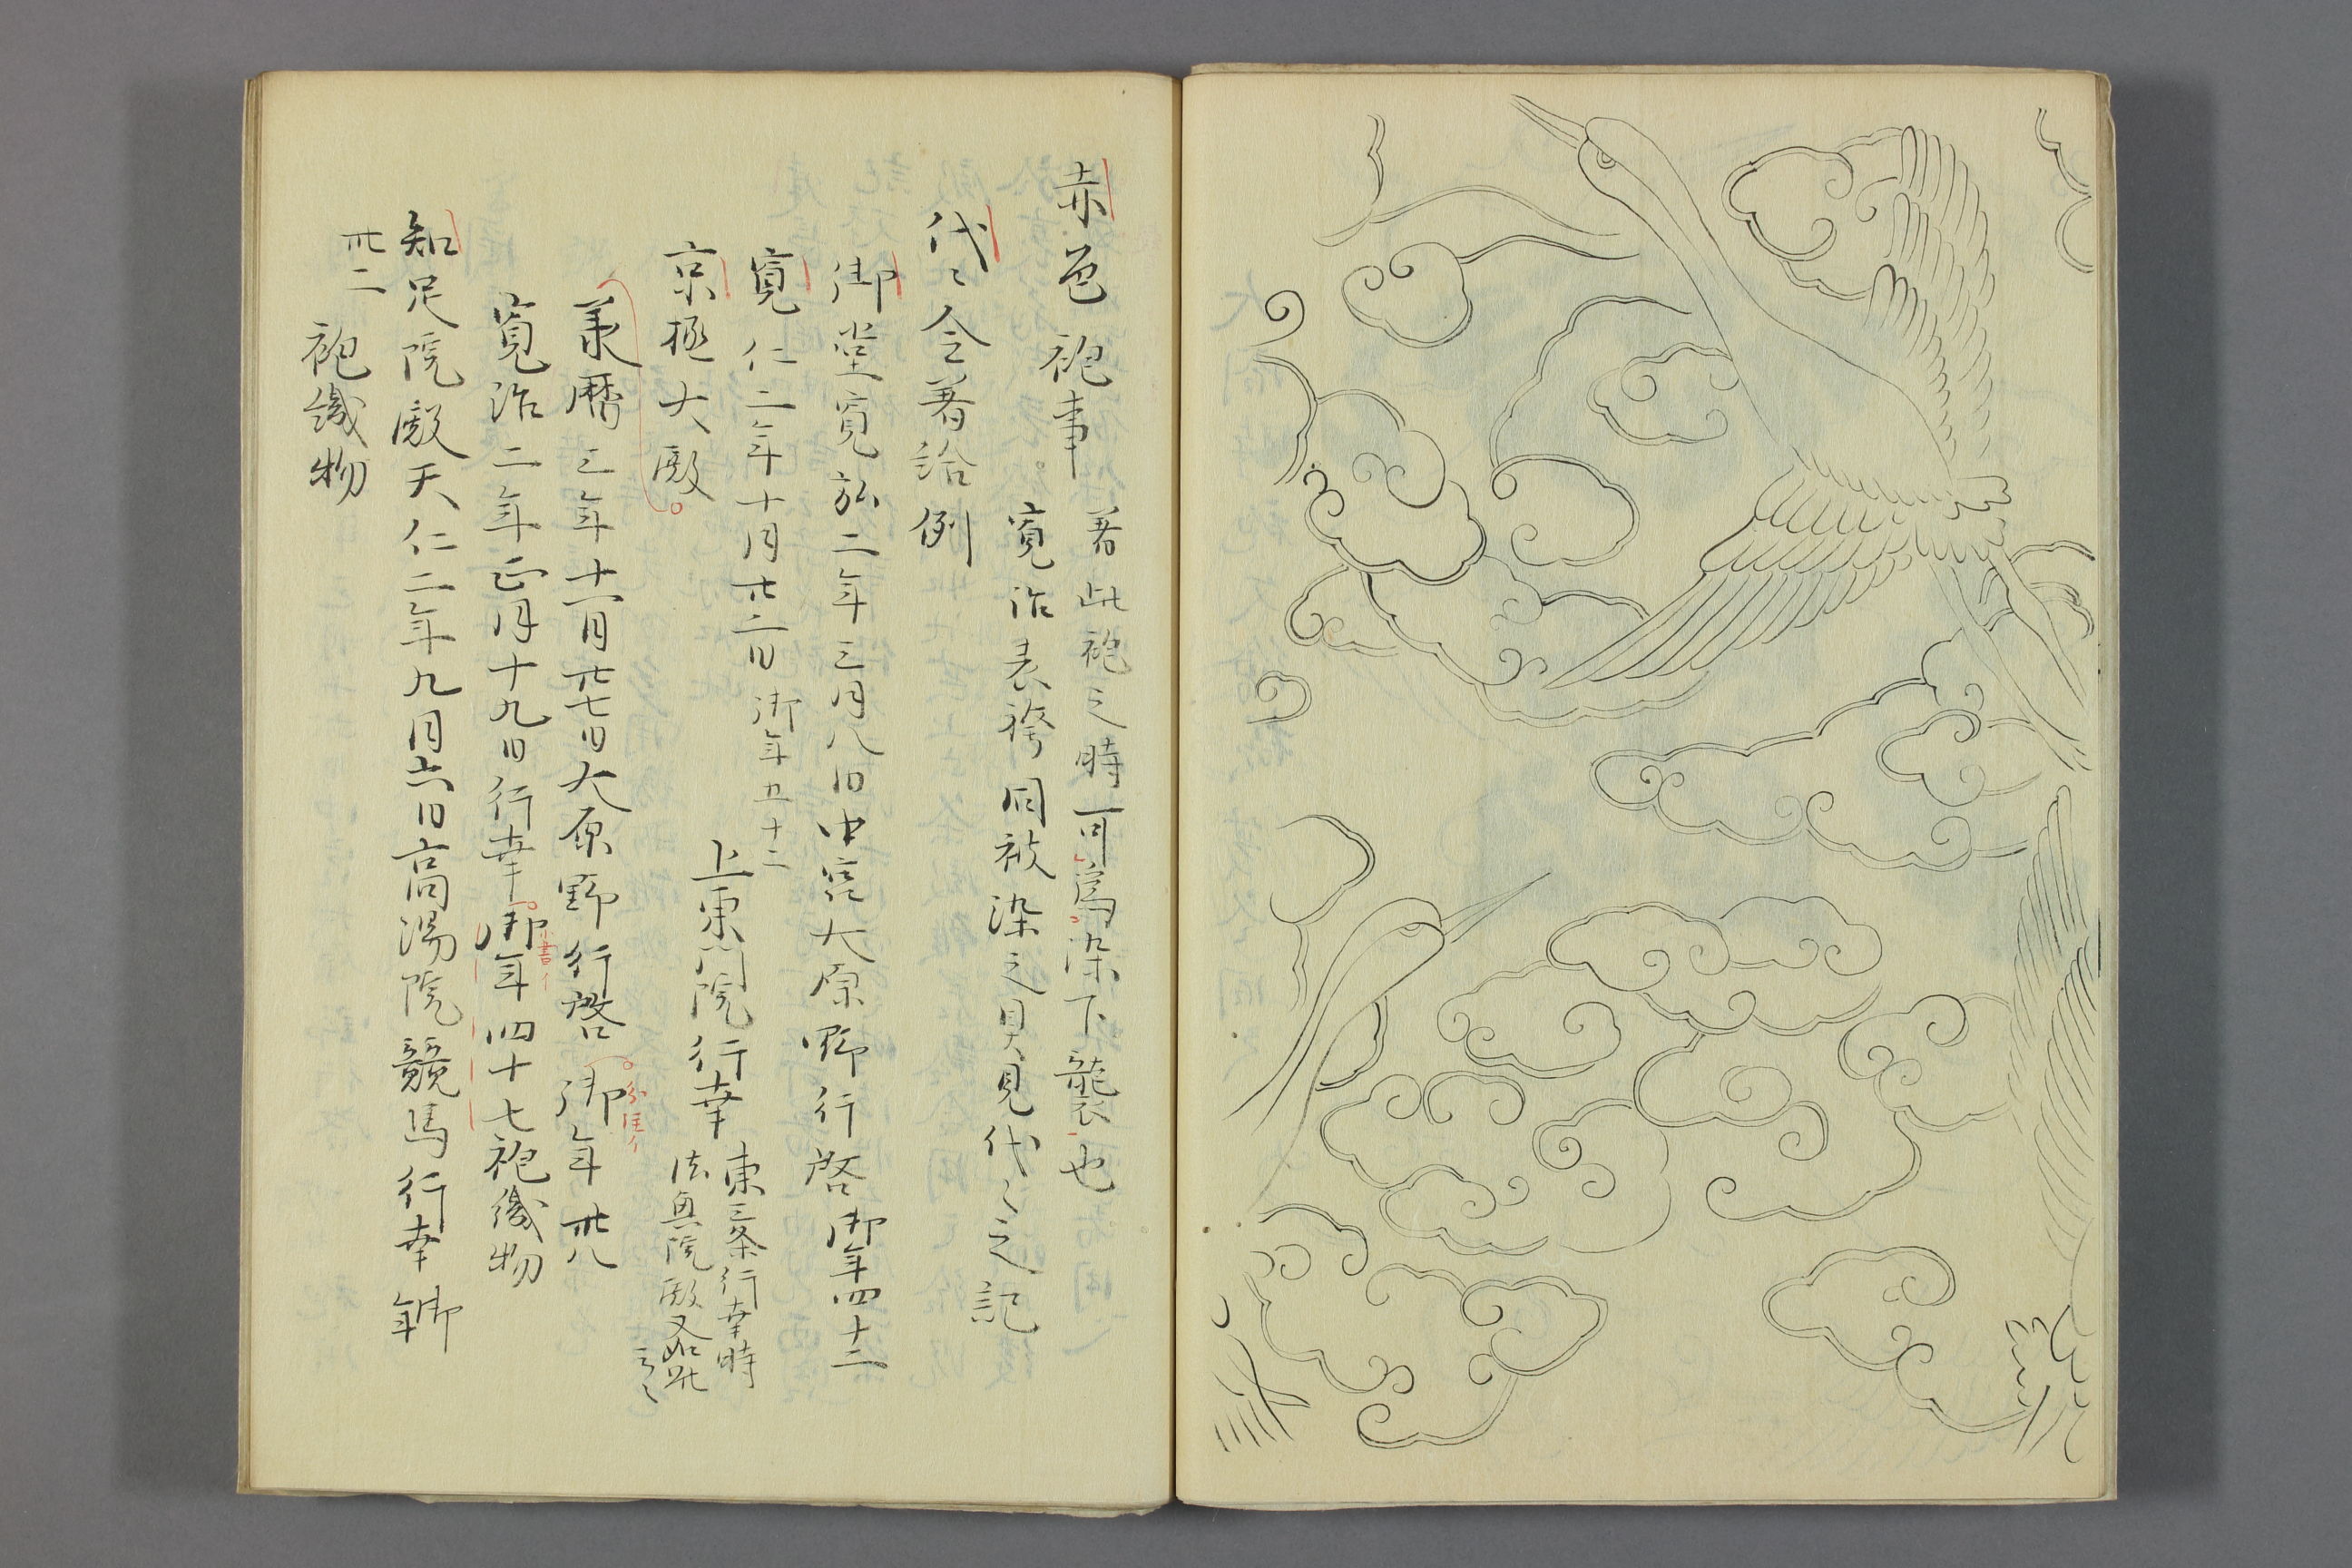 赤色袍事 著此袍之時可為染下襲也
寛治表袴同被染之具見代々之記
代々令著給例
御堂寛弘二年三月八日中宮大原野行啓御年四十二
寛仁二年十月廿二日御年五十二
上東門院行幸 東三条行幸時
法興院殿又如此云々
京極大殿
承暦三年十一月廿七日大原野行啓 御年卅八
寛治二年正月十九日行幸御年四十七袍織物
知足院殿天仁二年九月六日高陽院競馬行幸御年
卅二 袍織物